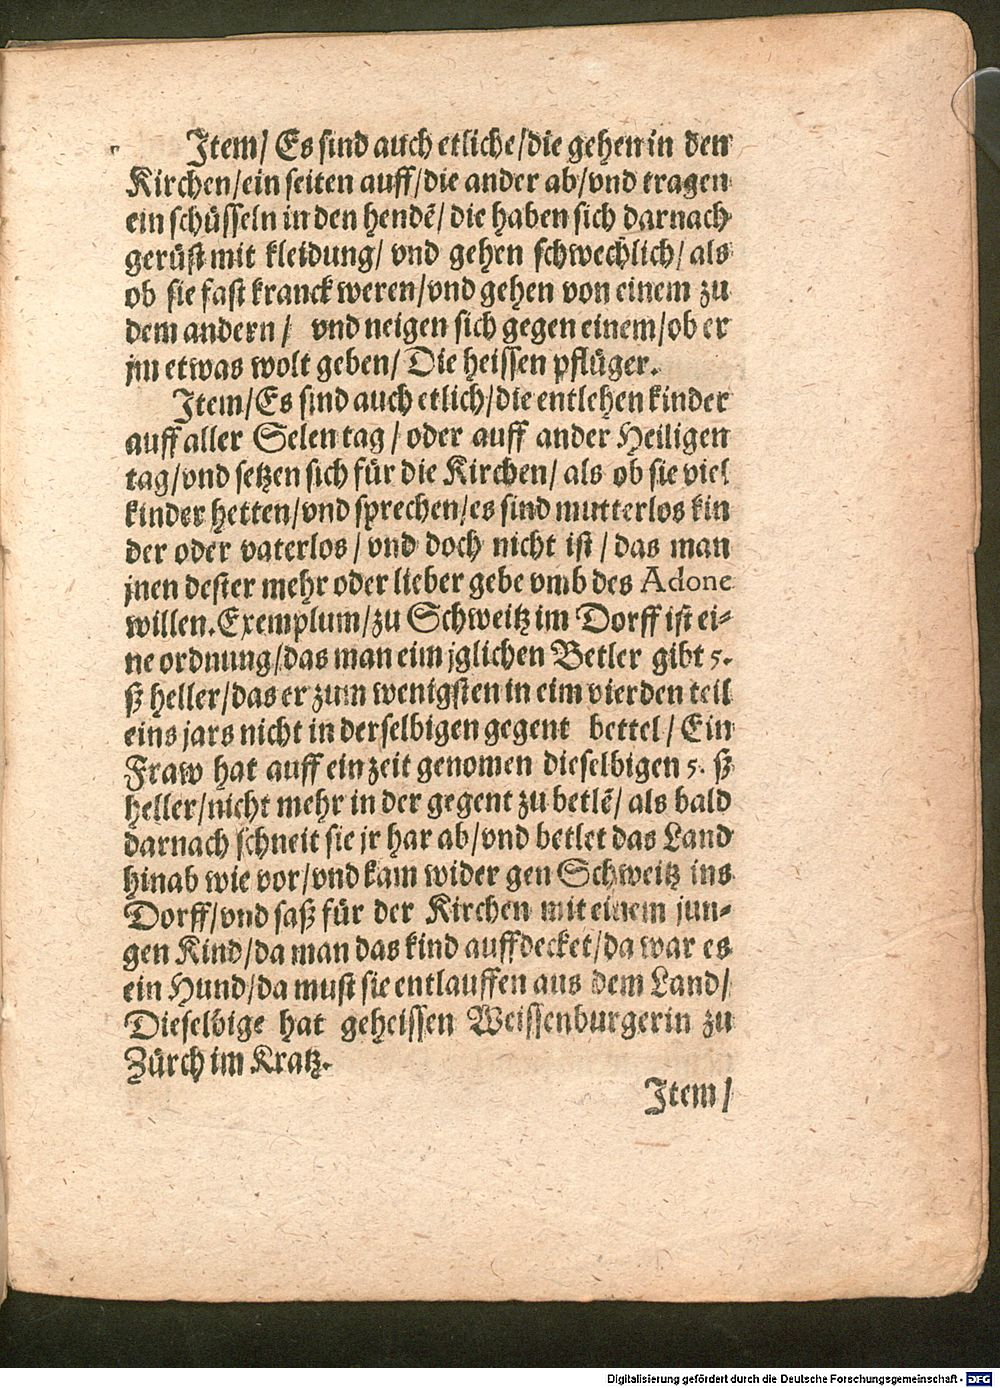 Item/ Es sind auch etliche/die gehen in den
Kirchen/ein seiten auff/die ander ab/vnd tragen
ein schüsseln in den hendē/ die haben sich darnach
gerüst mit kleidung/ vnd gehen schwechlich/ als
ob sie fast kranck weren/vnd gehen von einem zu
dem andern/ vnd neigen sich gegen einem/ob er
jm etwas wolt geben/ Die heissen pflüger.
Item/Es sind auch etlich/die entlehen kinder
auff aller Selen tag/ oder auff ander Heiligen
tag/vnd setzen sich für die Kirchen/ als ob sie viel
kinder hetten/vnd sprechen/es sind mutterlos kin
der oder vaterlos/ vnd doch nicht ist/ das man
jnen dester mehr oder lieber gebe vmb des Adone
willen. Exemplum/zu Schweitz im Dorff ist ei-
ne ordnung/das man eim jglichen Betler gibt 5.
ß heller/das er zum wenigsten in eim vierden teil
eins jars nicht in derselbigen gegent bettel/ Ein
Fraw hat auff ein zeit genomen dieselbigen 5. ß
heller/nicht mehr in der gegent zu betlē/ als bald
darnach schneit sie jr har ab/vnd betlet das Land
hinab wie vor/vnd kam wider gen Schweitz ins
Dorff/vnd saß für der Kirchen mit einem jun-
gen Kind/da man das kind auffdecket/da war es
ein Hund/da must sie entlauffen aus dem Land/
Dieselbige hat geheissen Weissenburgerin zu
Zürch im Kratz.
Item/
Digitalisierung gefördert durch die Deutsche Forschungsgemeinschaft - DFG